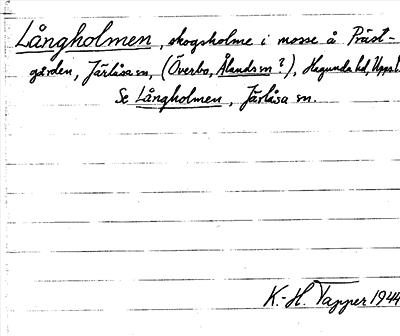 Långholmen, skogsholme i mosse å Präst-
gården, Järlåsa sn, (Överbo, Ålands sn?), Hagunda hd, Uppsl.
Se Långholmen, Järlåsa sn.
K.-H. Tapper 1944